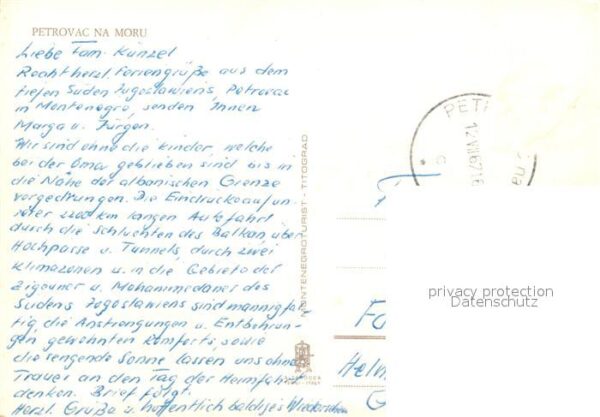 PETROVAC NA MORU
Liebe Fam. Künzel
Recht herzl. Feriengrüße aus dem
tiefen Süden Jugoslawiens, Petrovac
in Montenegro, senden Ihnen
Marga u. Jürgen.
Wir sind ohne die Kinder, welche
bei der Oma geblieben sind bis in
die Nähe der albanischen Grenze
vorgedrungen. Die Eindrücke auf un-
serer 2200 km langen Autofahrt
durch die Schluchten des Balkan über
Hochpässe u. Tunnels, durch zwei
Klimazonen u. in die Gebiete der
Zigeuner u. Mohammedaner des
Südens Jugoslawiens sind mannigfal-
tig, die Anstrengungen u. Entbehrun-
gen gewohnten Komforts, sowie
die sengende Sonne lassen uns ohne
Trauer an den Tag der Heimfahrt
denken. Brief folgt.
Herzl. Grüße u. hoffentlich baldiges Wiedersehen
MONTENEGROTURIST - TITOGRAD
PET
privacy protection
Datenschutz
Helm